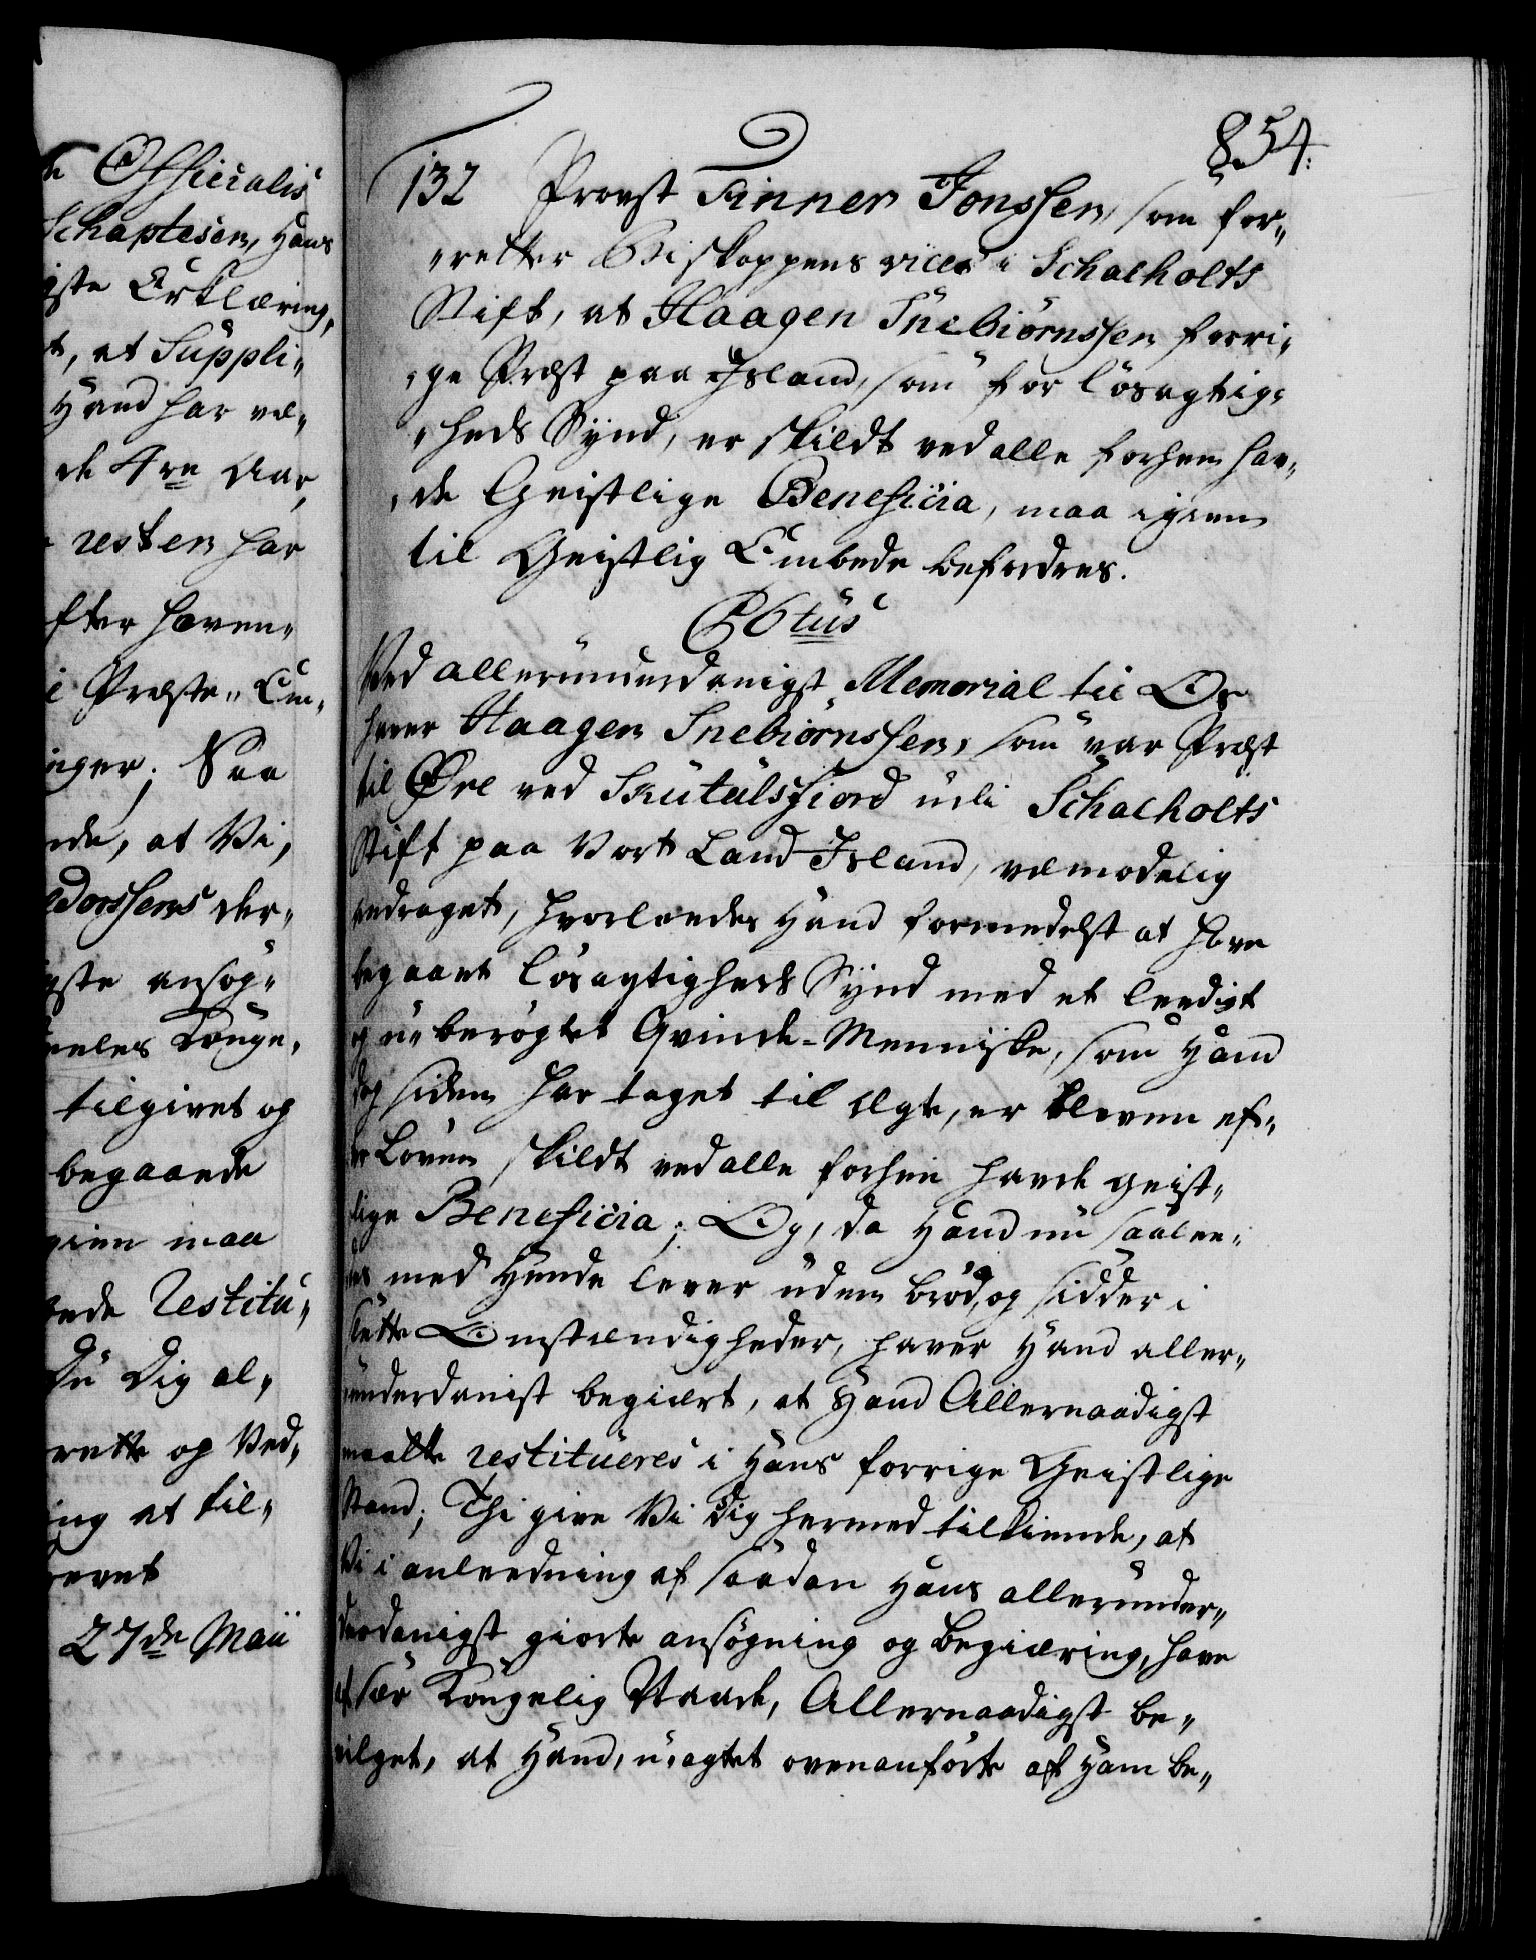 Officialis
Schaptesen, Hans
igste Erklæring,
t, at Suppli„
Hand har væ„
de 4re Aar,
resten har
fter haven„
i Præste„ Em„
inger; Saa
nde, at Vi,
dorssens der„
gste ansøg„
Konge„
tilgivet og
begaaede
gien maa
ede restitu„
Du Dig al„
rette og Ved„
ing at til„
revet
27de Maii
854.
132 Provst Finner Jonssen, som for„
„retter Biskoppens vices i Schalholts
Stift, at Haagen Snebiörnssen forri„
„ge Præst paa Island, som for løsagtig„
„heds Synd, er skildt ved alle forhen hav„
„de Geistlige Beneficia, maa igien
til Geistlig Embede befordres.
PStus
Ved allerunderdanigst Memorial til Os
haver Haagen Snebiörnssen, som var Præst
til Øre ved Skutulsfiord udi Schalholts
Stift paa Vort Land Island, vemodelig
andraget, hvorledes Hand formedelst at have
begaaet løsagtigheds Synd med et leedigt
og u„berøgtet Qvinde-Menniske, som Hand
dog siden har taget til Ægte, er bleven ef„
ter Loven skildt ved alle forhen havde geist„
lige Beneficia; Og, da Hand nu saalee„
des med Hende lever uden brød, og sidder i
slette Omstændigheder, haver Hand aller„
underdanist begiært, at Hand Allernaadigst
maatte restitueres i Hans forrige Geistlige
Stand; Thi give Vi Dig hermed tilkiende, at
Vi i anleedning af saadan Hans allerunder„
derdanigst giorte ansøgning og begiæring, have
af sær Kongelig Naade, Allernaadigst be„
vilget, at Hand, u„agtet ovenanførte af Ham be„